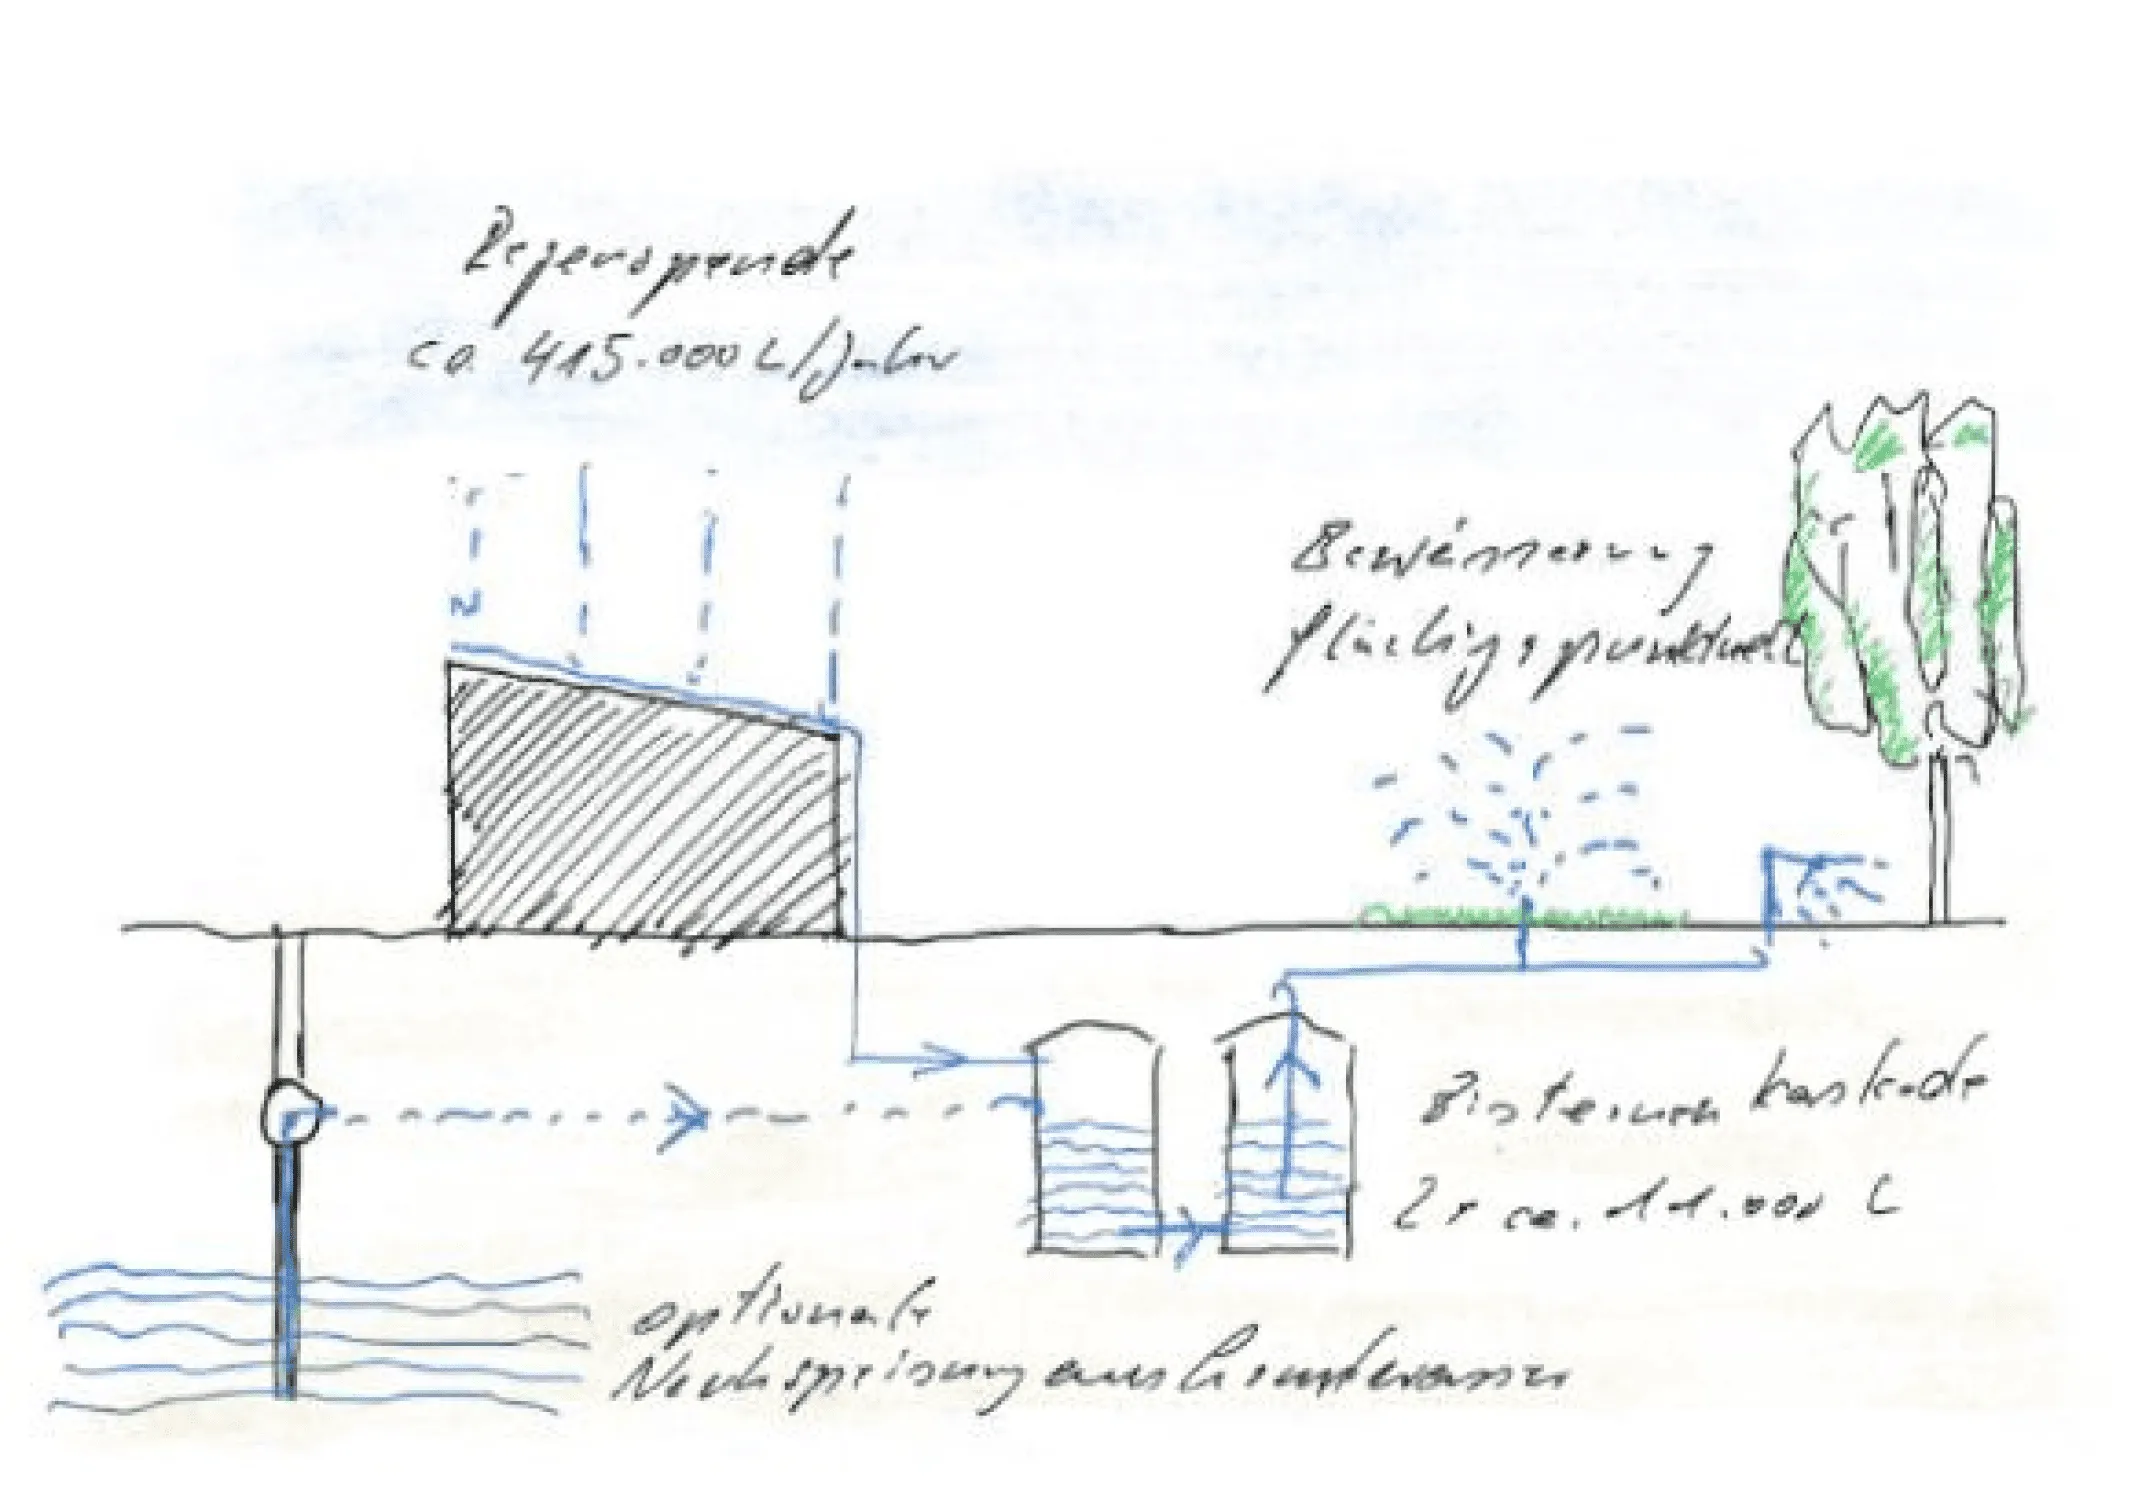 Regenspende
ca. 415.000 L/Jahr
Bewässerung
flächig + punktuell
Zisternenkaskade
2x ca. 11.000 L
optionale
Nachspeisung aus Grundwasser